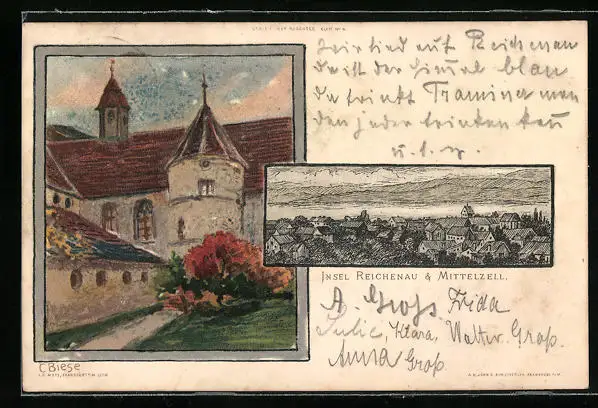 wir sind auf Reichenau
da ist der Himmel blau
da trinkt Traminer man
den jeder trinken kan
u. s. w.
INSEL REICHENAU & MITTELZELL.
A. Groß Frida
Julie, Klara, Walter Groß.
Anna Groß
C BIESE